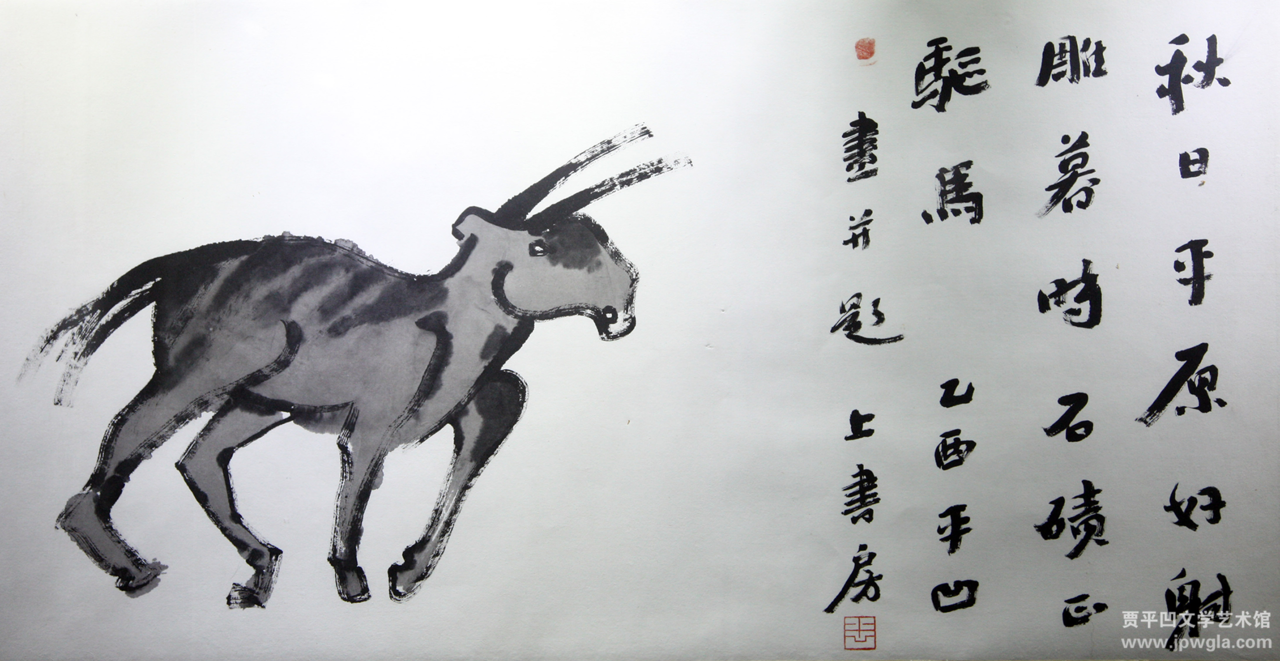 秋日平原好射
雕暮時石磧正
驅馬 乙酉平凹
畫并題 上書房
贾平凹文学艺术馆
www.jpwgla.com